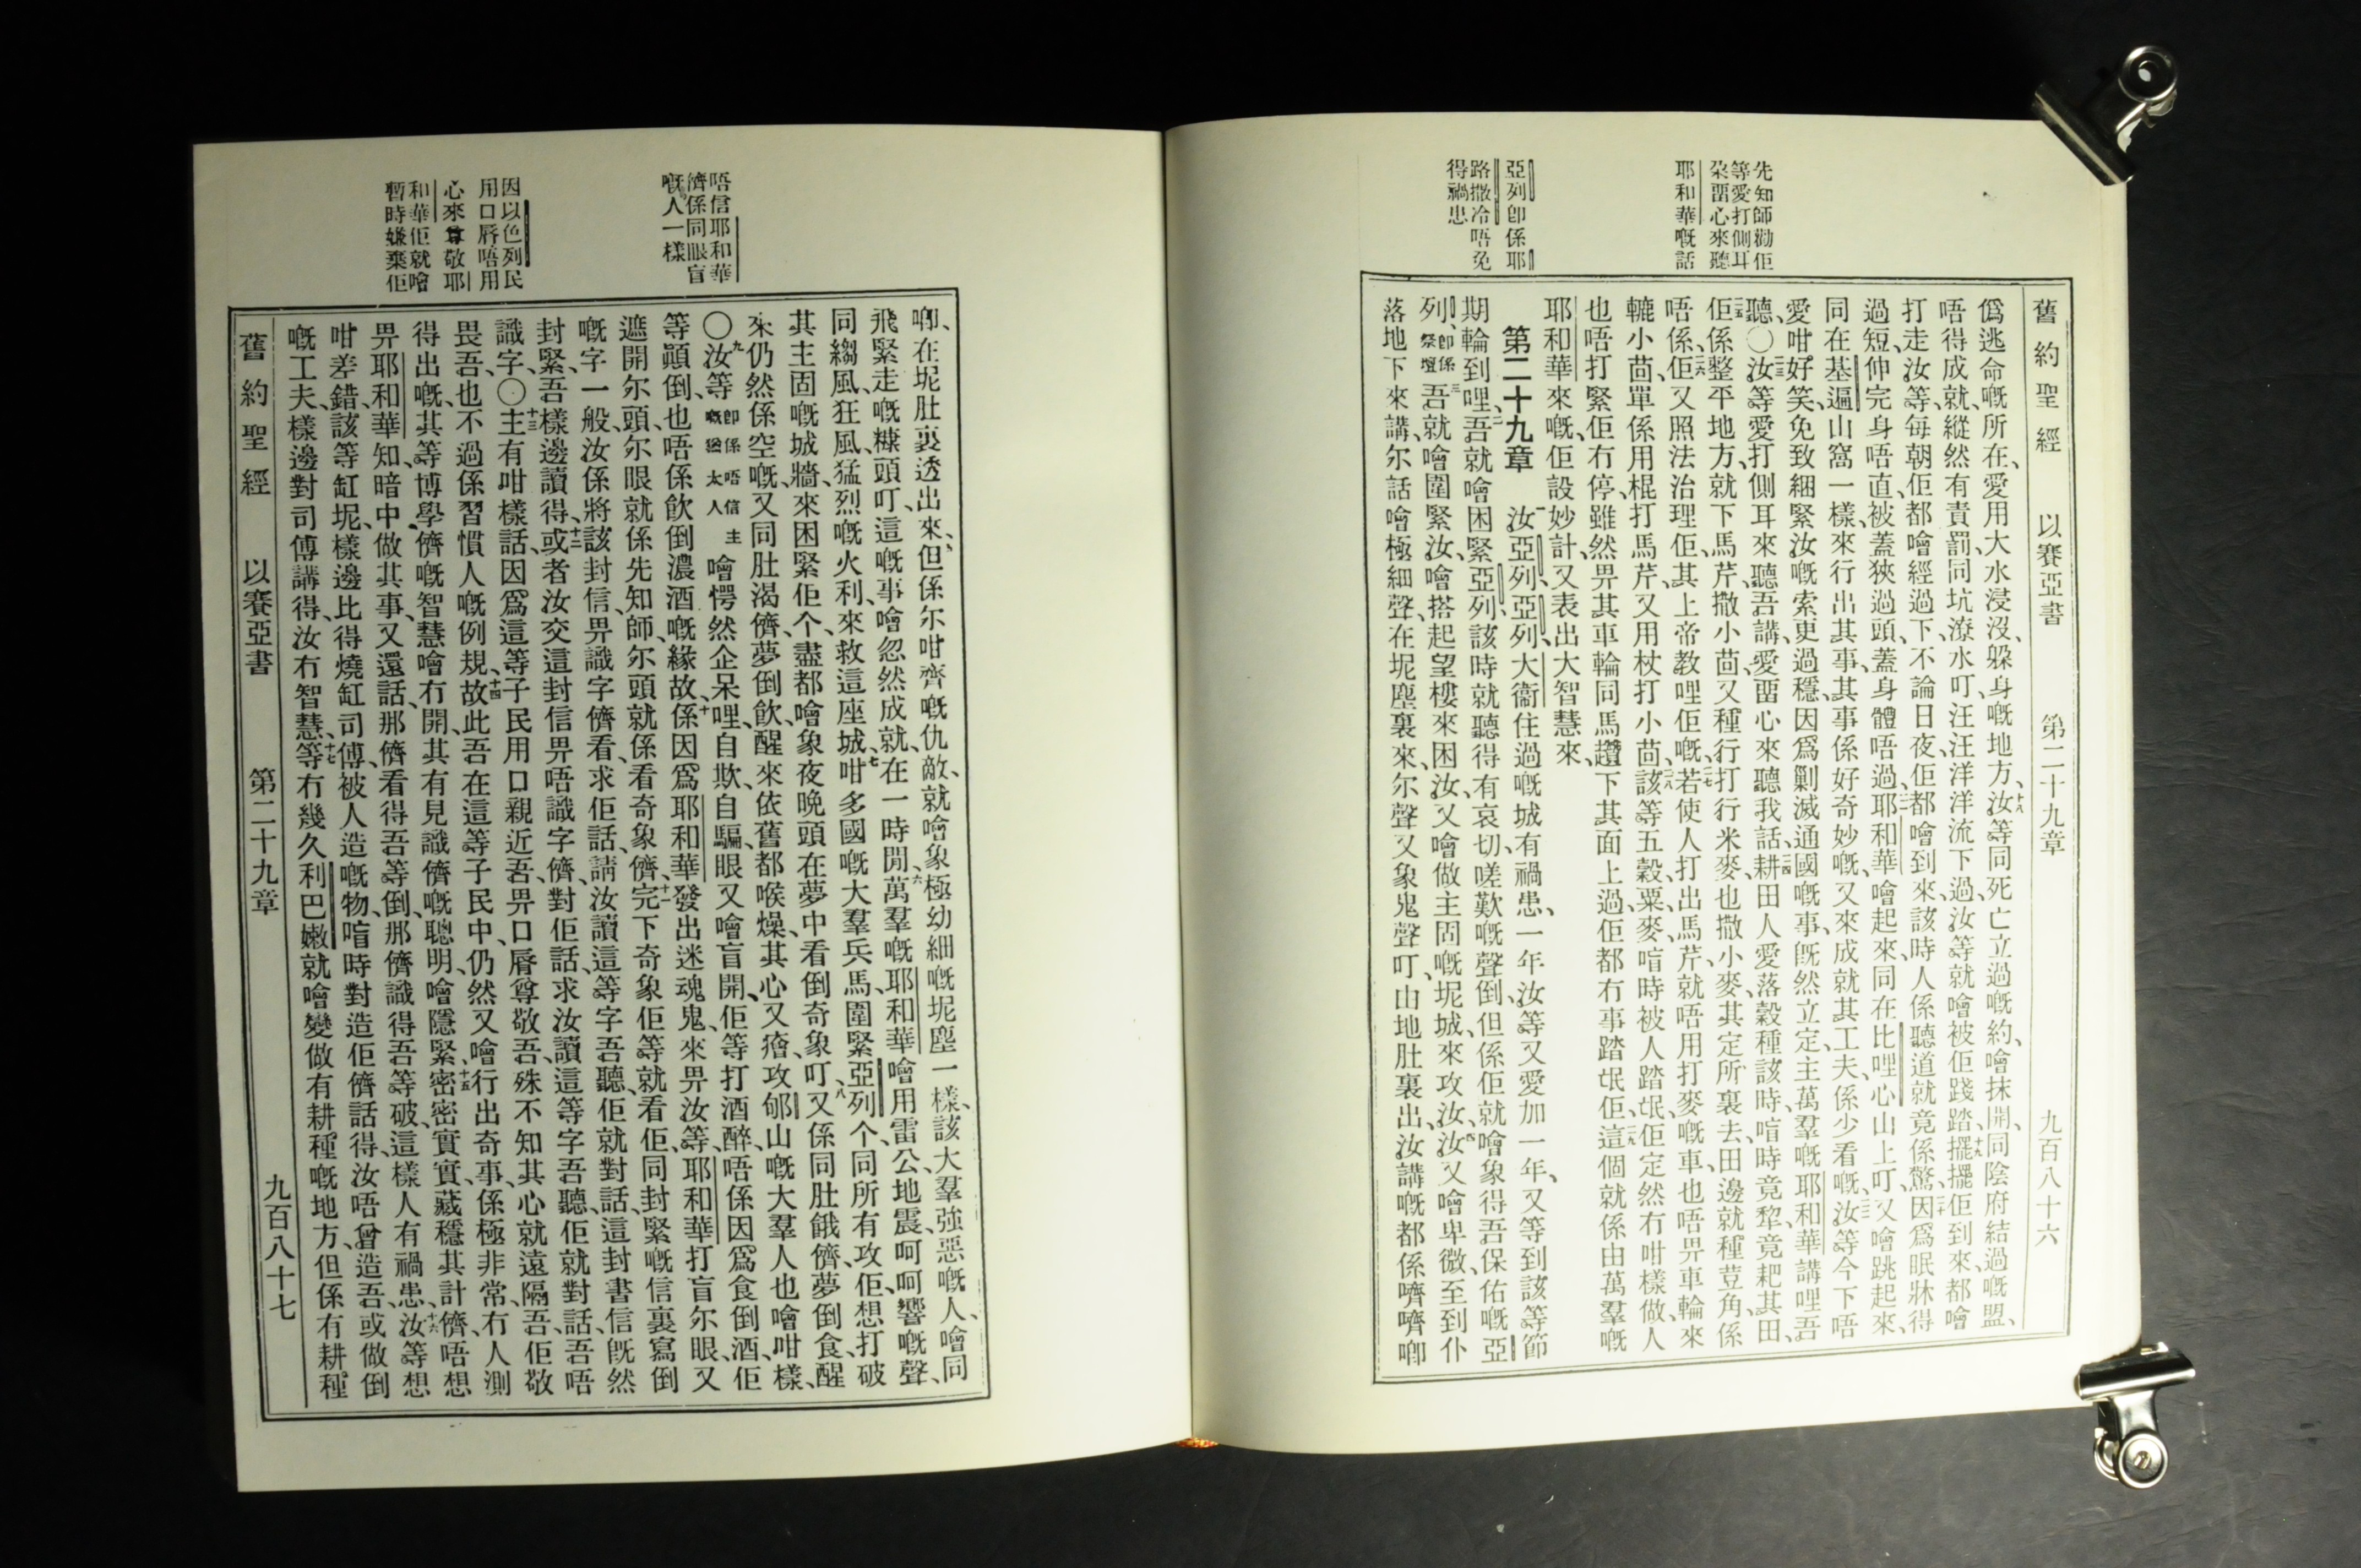 先知師勸佢
等愛打側耳
朶畱心來聽
耶和華嘅話
亞列卽係耶
路撒冷唔免
得禍患
舊約聖經 以賽亞書 第二十九章 九百八十六
爲逃命嘅所在、愛用大水浸沒、躱身嘅地方、十八汝等同死亡立過嘅約、噲抹開、同陰府結過嘅盟、
唔得成就、縱然有責罰、同坑潦水叮、汪汪洋洋流下過、汝等就噲被佢踐踏、十九擺擺佢到來、都噲
打走汝等、每朝佢都噲經過下、不論日夜、佢都噲到來、該時人係聽道就竟係驚、二十因爲眠牀得
過短、伸完身唔直、被蓋狹過頭、蓋身體唔過、二一耶和華噲起來、同在比哩心山上叮、又噲跳起來、
同在基遍山窩一樣、來行出其事、其事係好奇妙嘅、又來成就其工夫、係少看嘅、二二汝等今下唔
愛咁好笑、免致綑緊汝嘅索更過穩、因爲剿滅通國嘅事、旣然立定、主萬羣嘅耶和華講哩吾
聽、〇二三汝等愛打側耳來聽吾講、愛畱心來聽我話、二四耕田人愛落穀種該時、喧時竟犂、竟耙其田、
二五佢係整平地方、就下馬芹、撒小茴、又種行打行米麥、也撒小麥、其定所裏去、田邊就種荳角、係
唔係、二六佢又照法治理佢、其上帝教哩佢嘅、二七若使人打出馬芹、就唔用打麥嘅車、也唔畀車輪來
轆小茴、單係用棍打馬芹、又用杖打小茴、二八該等五穀、粟麥、喧時被人踏氓、佢定然冇咁樣做、人
也唔打緊佢冇停、雖然畀其車輪同馬趲下其面上過、佢都冇事踏氓佢、二九這個就係由萬羣嘅
耶和華來嘅、佢設妙計、又表出大智慧來、
第二十九章 一汝亞列、亞列、大衞住過嘅城、有禍患、一年汝等又愛加一年、又等到該等節
期輪到哩、二吾就噲困緊亞列、該時就聽得有哀切、嗟歎嘅聲倒、但係佢就噲象得吾保佑嘅亞
列、卽係祭壇三吾就噲圍緊汝、噲搭起望樓來困汝、又噲做主固嘅坭城、來攻汝、四汝又噲卑微、至到仆
落地下來講、尔話噲極細聲、在坭塵裏來、尔聲又象鬼聲叮、由地肚裏出、汝講嘅都係嚌嚌唧
唔信耶和華
儕係同眼盲
嘅人一樣
因以色列民
用口唇唔用
心來尊敬耶
和華佢就噲
暫時嫌棄佢
唧、在坭肚裏透出來、五但係尔咁齊嘅仇敵、就噲象極幼細嘅坭塵一樣、該大羣強惡嘅人、噲同
飛緊走嘅糠頭叮、這嘅事噲忽然成就、在一時間、六萬羣嘅耶和華噲用雷公、地震、呵呵響嘅聲、
同縐風、狂風、猛烈嘅火利、來救這座城、七咁多國嘅大羣兵馬、圍緊亞列个、同所有攻佢、想打破
其主固嘅城牆、來困緊佢个、盡都噲象夜晚頭在夢中看倒奇象叮、八又係同肚餓儕、夢倒食、醒
來仍然係空嘅、又同肚渴儕、夢倒飲、醒來依舊都喉燥、其心又癐、攻郇山嘅大羣人也噲咁樣、
〇九汝等卽係唔信主嘅猶太人噲愕然企呆哩、自欺、自騙、眼又噲盲開、佢等打酒醉、唔係因爲食倒酒、佢
等顚倒、也唔係飲倒濃酒嘅緣故、十係因爲耶和華發出迷魂鬼、來畀汝等、耶和華打盲尔眼、又
遮開尔頭、尔眼就係先知師、尔頭就係看奇象儕、十一完下奇象、佢等就看佢、同封緊嘅信裏寫倒
嘅字一般、汝係將該封信、畀識字儕看、求佢話、請汝讀這等字吾聽、佢就對話、這封書信旣然
封緊、吾樣邊讀得、十二或者汝交這封信畀唔識字儕、對佢話、求汝讀這等字吾聽、佢就對話、吾唔
識字、〇十三主有咁樣話、因爲這等子民用口親近吾、畀口脣尊敬吾、殊不知其心就遠隔吾、佢敬
畏吾、也不過係習慣人嘅例規、十四故此吾在這等子民中、仍然又噲行出奇事、係極非常、冇人測
得出嘅、其等博學儕嘅智慧噲冇開、其有見識儕嘅聰明、噲隱緊、十五密密實實、藏穩其計儕、唔想
畀耶和華知、暗中做其事、又還話、那儕看得吾等倒、那儕識得吾等破、這樣人有禍患、十六汝等想
咁差錯、該等缸坭、樣邊比得燒缸司傅、被人造嘅物、喧時對造佢儕話得、汝唔曾造吾、或做倒
嘅工夫、樣邊對司傅講得、汝冇智慧、十七等冇幾久、利巴嫩就噲變做有耕種嘅地方、但係有耕種
舊約聖經 以賽亞書 第二十九章 九百八十七